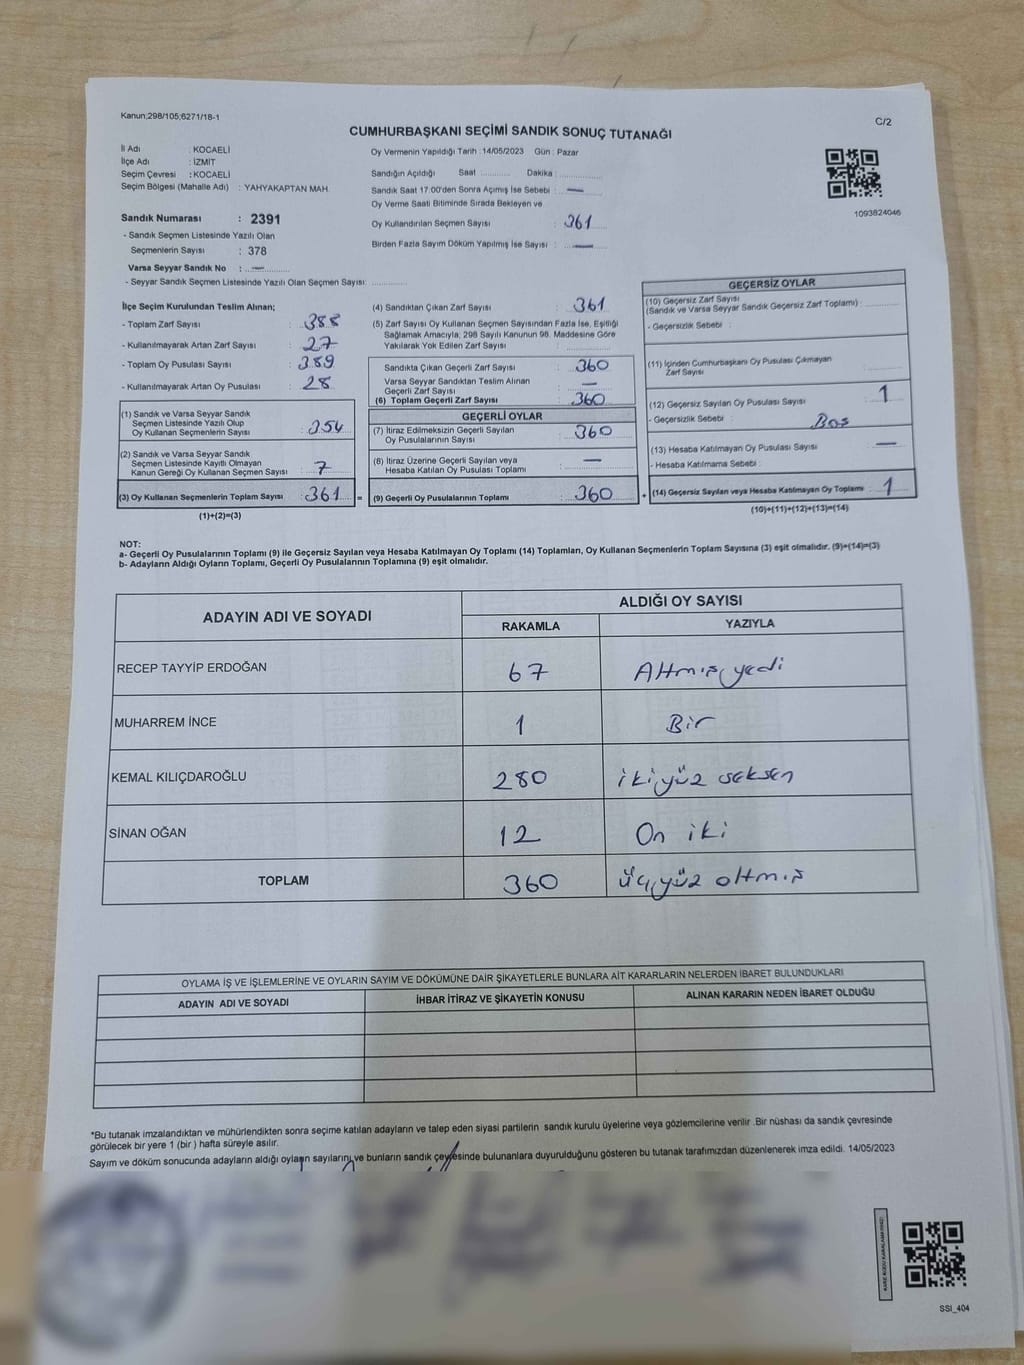 Kanun;298/105;6271/18-1
C/2
CUMHURBAŞKANI SEÇİMİ SANDIK SONUÇ TUTANAĞI
İl Adı : KOCAELİ
İlçe Adı : İZMİT
Seçim Çevresi : KOCAELİ
Seçim Bölgesi (Mahalle Adı) : YAHYAKAPTAN MAH.
Sandık Numarası : 2391
- Sandık Seçmen Listesinde Yazılı Olan
Seçmenlerin Sayısı : 378
Varsa Seyyar Sandık No : —
- Seyyar Sandık Seçmen Listesinde Yazılı Olan Seçmen Sayısı: ..............
Oy Vermenin Yapıldığı Tarih :14/05/2023 Gün : Pazar
Sandığın Açıldığı Saat ............ Dakika : ................
Sandık Saat 17:00'den Sonra Açımış İse Sebebi : —
Oy Verme Saati Bitiminde Sırada Bekleyen ve
Oy Kullandırılan Seçmen Sayısı : 361
Birden Fazla Sayım Döküm Yapılmış İse Sayısı : —
1093824046
İlçe Seçim Kurulundan Teslim Alınan;
- Toplam Zarf Sayısı : 388
- Kullanılmayarak Artan Zarf Sayısı : 27
- Toplam Oy Pusulası Sayısı : 389
- Kullanılmayarak Artan Oy Pusulası : 28
(1) Sandık ve Varsa Seyyar Sandık
Seçmen Listesinde Yazılı Olup
Oy Kullanan Seçmenlerin Sayısı : 354
(2) Sandık ve Varsa Seyyar Sandık
Seçmen Listesinde Kayıtlı Olmayan
Kanun Gereği Oy Kullanan Seçmen Sayısı : 7
(3) Oy Kullanan Seçmenlerin Toplam Sayısı : 361 =
(1)+(2)=(3)
(4) Sandıktan Çıkan Zarf Sayısı : 361
(5) Zarf Sayısı Oy Kullanan Seçmen Sayısından Fazla İse, Eşitliği
Sağlamak Amacıyla; 298 Sayılı Kanunun 98. Maddesine Göre
Yakılarak Yok Edilen Zarf Sayısı : ..............
Sandıkta Çıkan Geçerli Zarf Sayısı : 360
Varsa Seyyar Sandıktan Teslim Alınan
Geçerli Zarf Sayısı : —
(6) Toplam Geçerli Zarf Sayısı : 360
GEÇERLİ OYLAR
(7) İtiraz Edilmeksizin Geçerli Sayılan
Oy Pusulalarının Sayısı : 360
(8) İtiraz Üzerine Geçerli Sayılan veya
Hesaba Katılan Oy Pusulası Toplamı : —
(9) Geçerli Oy Pusulalarının Toplamı : 360 +
GEÇERSİZ OYLAR
(10) Geçersiz Zarf Sayısı
(Sandık ve Varsa Seyyar Sandık Geçersiz Zarf Toplamı) : ..............
- Geçersizlik Sebebi :
(11) İçinden Cumhurbaşkanı Oy Pusulası Çıkmayan
Zarf Sayısı : ..............
(12) Geçersiz Sayılan Oy Pusulası Sayısı : 1
- Geçersizlik Sebebi : Boş
(13) Hesaba Katılmayan Oy Pusulası Sayısı : —
- Hesaba Katılmama Sebebi :
(14) Geçersiz Sayılan veya Hesaba Katılmayan Oy Toplamı : 1
(10)+(11)+(12)+(13)=(14)
NOT:
a- Geçerli Oy Pusulalarının Toplamı (9) ile Geçersiz Sayılan veya Hesaba Katılmayan Oy Toplamı (14) Toplamları, Oy Kullanan Seçmenlerin Toplam Sayısına (3) eşit olmalıdır. (9)+(14)=(3)
b- Adayların Aldığı Oyların Toplamı, Geçerli Oy Pusulalarının Toplamına (9) eşit olmalıdır.
ADAYIN ADI VE SOYADI
ALDIĞI OY SAYISI
RAKAMLA YAZIYLA
RECEP TAYYİP ERDOĞAN 67 Altmış yedi
MUHARREM İNCE 1 Bir
KEMAL KILIÇDAROĞLU 280 iki yüz seksen
SİNAN OĞAN 12 On iki
TOPLAM 360 üç yüz altmış
OYLAMA İŞ VE İŞLEMLERİNE VE OYLARIN SAYIM VE DÖKÜMÜNE DAİR ŞİKAYETLERLE BUNLARA AİT KARARLARIN NELERDEN İBARET BULUNDUKLARI
ADAYIN ADI VE SOYADI İHBAR İTİRAZ VE ŞİKAYETİN KONUSU ALINAN KARARIN NEDEN İBARET OLDUĞU
*Bu tutanak imzalandıktan ve mühürlendikten sonra seçime katılan adayların ve talep eden siyasi partilerin sandık kurulu üyelerine veya gözlemcilerine verilir .Bir nüshası da sandık çevresinde
görülecek bir yere 1 (bir ) hafta süreyle asılır.
Sayım ve döküm sonucunda adayların aldığı oyların sayılarını ve bunların sandık çevresinde bulunanlara duyurulduğunu gösteren bu tutanak tarafımızdan düzenlenerek imza edildi. 14/05/2023
SSI_404